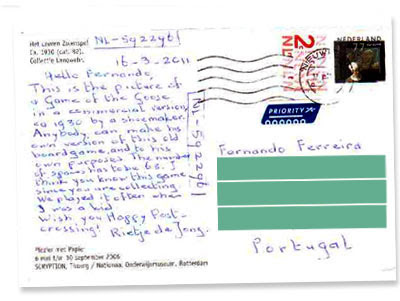 Het Leeren Zwaenspel
Ca. 1930 (cat. 82).
Collectie Landewehr.
NL-592296!
16-3-2011
Hello Fernando,
This is the picture of
a Game of the Goose
in a commercial version
ca 1930 by a shoemaker.
Anybody can make his
own version of this old
boardgame, and to his
own purposes. The number
of squares has to be 63. I
think you know this game
since you are collecting
We played it often when
I was a kid
Wish you Happy Post-
crossing! Rietje de Jong.
Plezier met Papier
6 mei t/m 10 september 2006
SCRYPTION, Tilburg / Nationaal Onderwijsmuseum, Rotterdam
NL-592296!
2
NEDERLAND
77
PRIORITY
Fernando Ferreira
Portugal